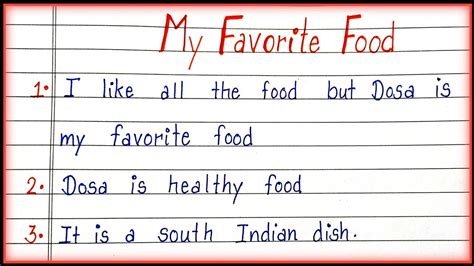 My Favorite Food
1. I like all the food but Dosa is
my favorite food
2. Dosa is healthy food
3. It is a south Indian dish.